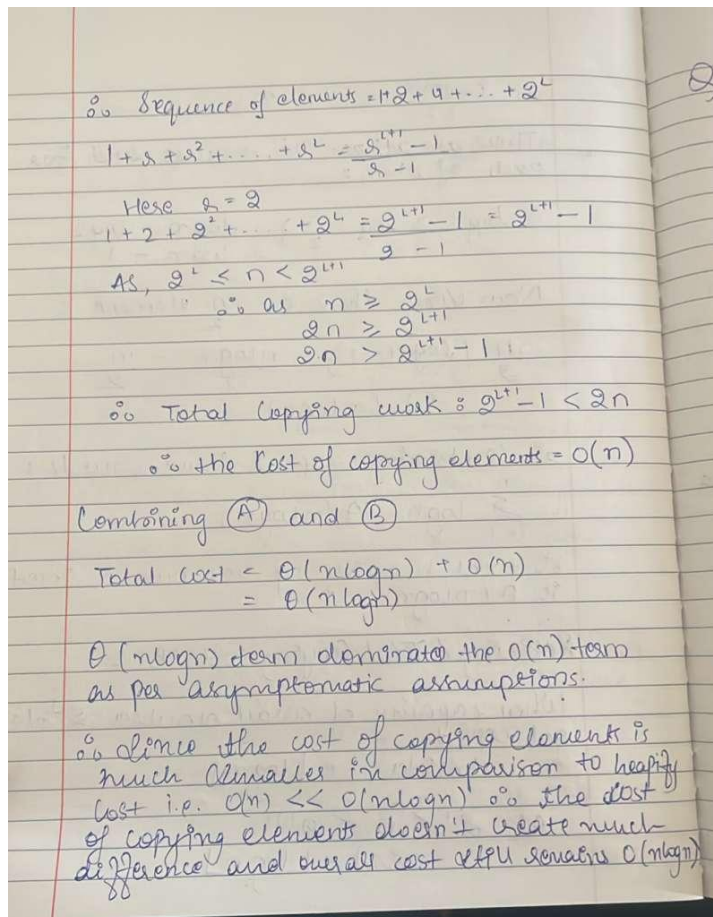 ∴ Sequence of elements = 1+2+4+...+2^L
1 + r + r² + .... + r^L = r^(L+1) - 1 / r - 1
Here r = 2
1 + 2 + 2² + ... + 2^L = 2^(L+1) - 1 / 2 - 1 = 2^(L+1) - 1
As, 2^L ≤ n < 2^(L+1)
∴ as n ≥ 2^L
2n ≥ 2^(L+1)
2n > 2^(L+1) - 1
∴ Total Copying work : 2^(L+1) - 1 < 2n
∴ the Cost of copying elements = O(n)
Combining (A) and (B)
Total cost = θ(nlogn) + O(n)
= θ(nlogn)
θ(nlogn) term dominates the O(n) term
as per asymptomatic assumptions.
∴ Since the cost of copying elements is
much smaller in comparison to heapify
cost i.e. O(n) << O(nlogn) ∴ the cost
of copying elements doesn't create much
difference and overall cost still remains O(nlogn)